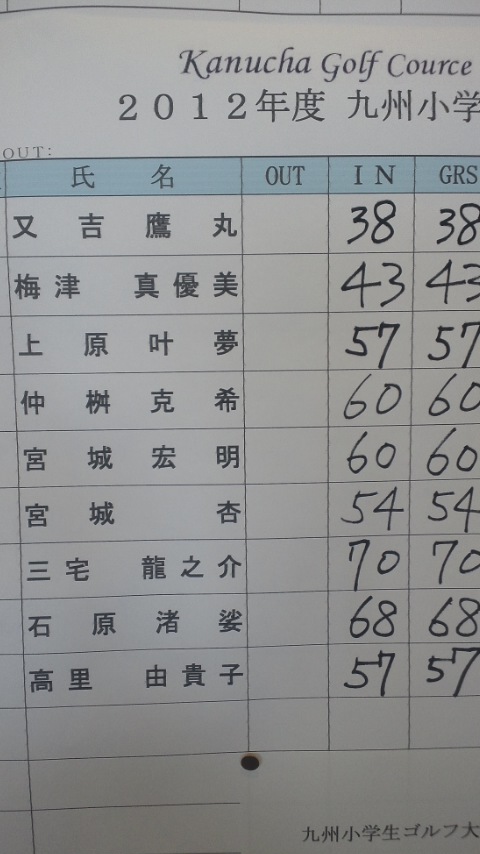 Kanucha Golf Cource
2012年度 九州小学
OUT:
氏 名 OUT IN GRS
又吉鷹丸 38 38
梅津 真優美 43 43
上原叶夢 57 57
仲桝克希 60 60
宮城宏明 60 60
宮城 杏 54 54
三宅 龍之介 70 70
石原渚娑 68 68
高里 由貴子 57 57
九州小学生ゴルフ大